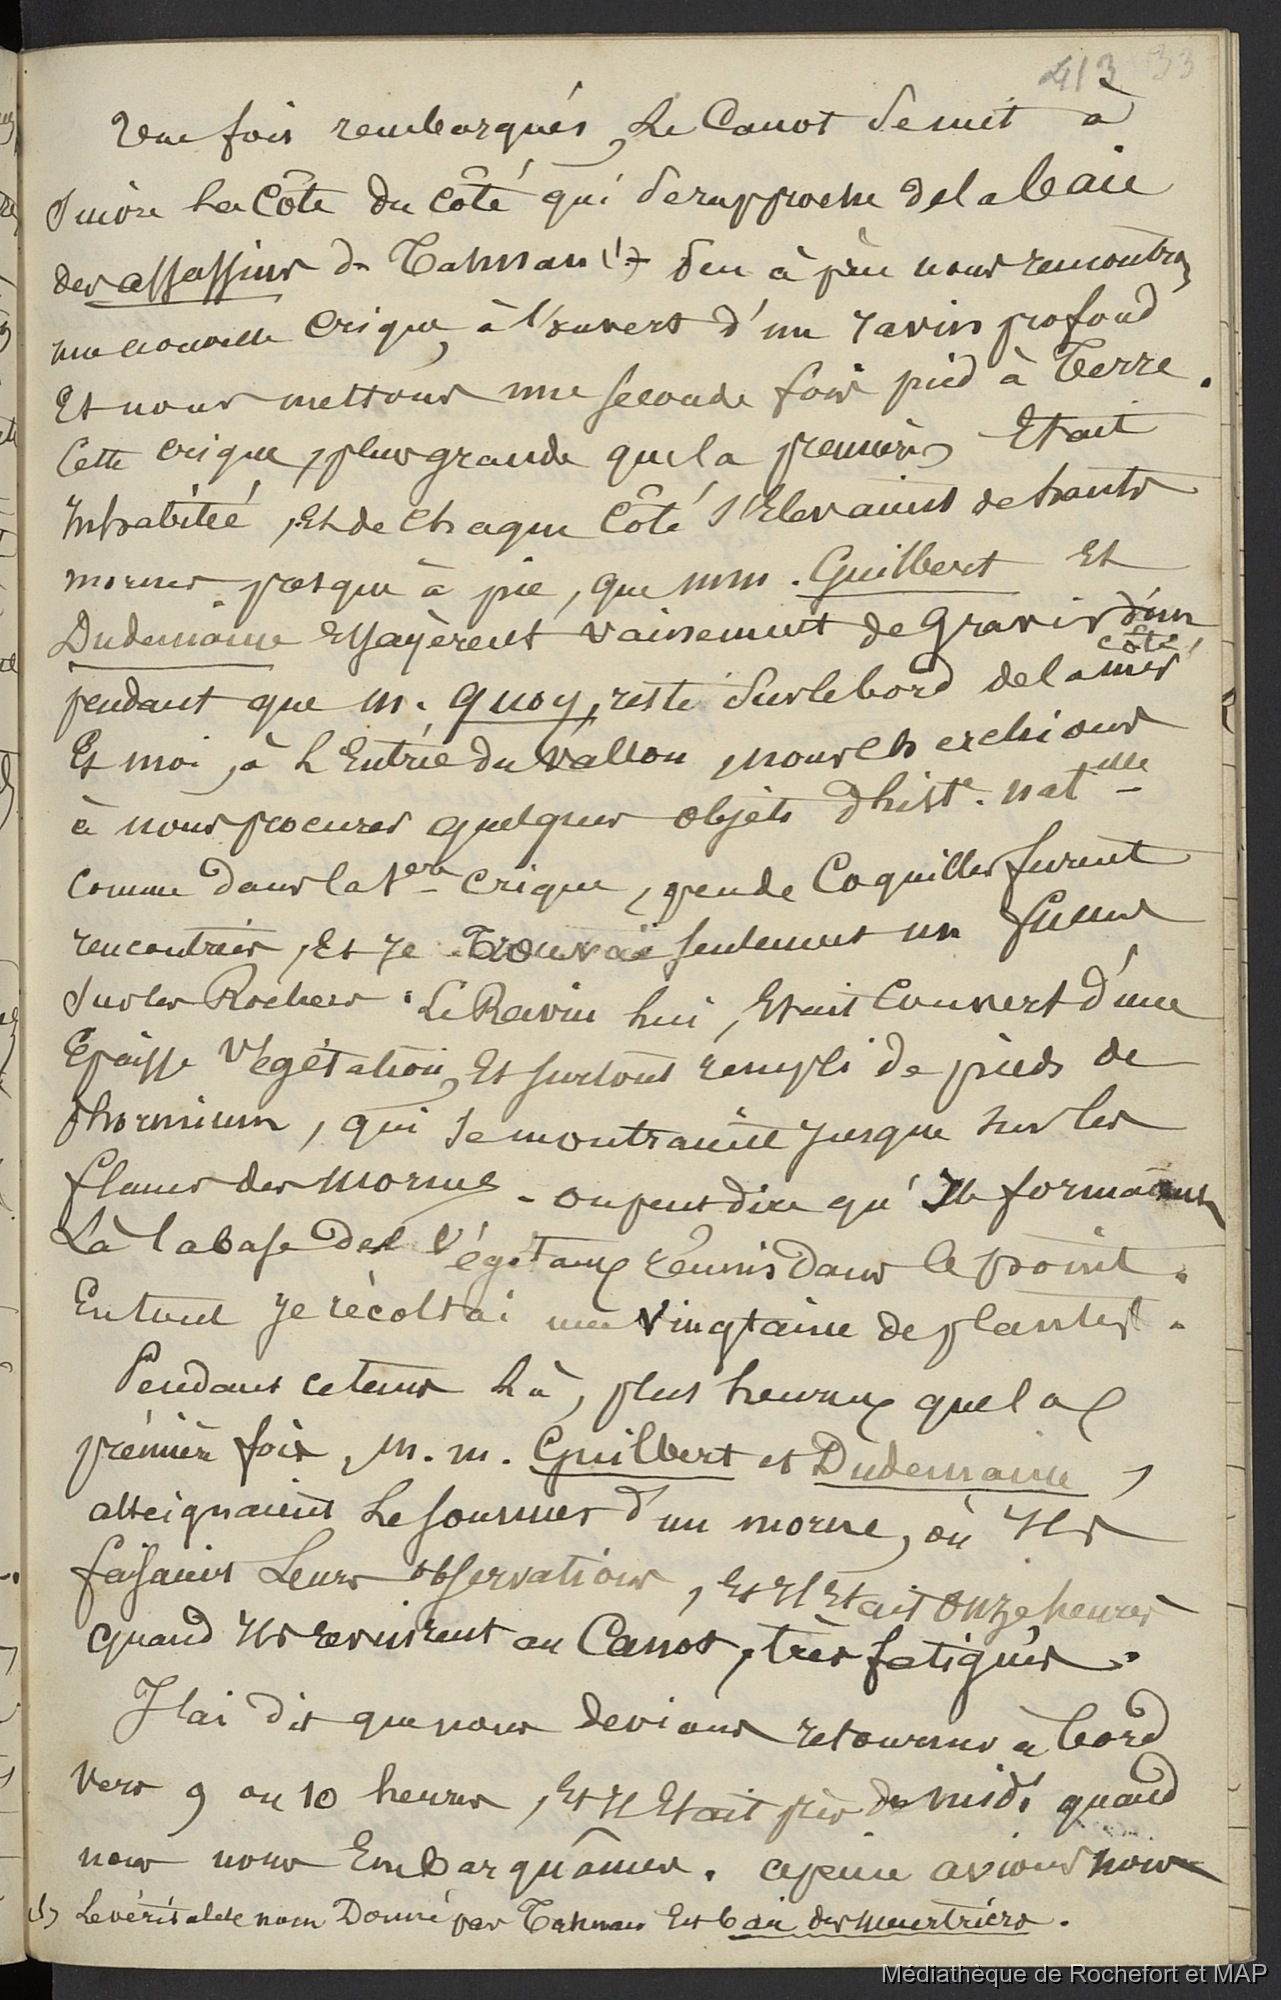 413 33
Une fois rembarqués, Le Canot se mit à
suivre La Côte du Côté qui se rapproche de la baie
des assassins de Tasman (1). Peu à peu nous rencontrons
une nouvelle Crique, à l'ouvert d'un ravin profond
Et nous mettons une seconde fois pied à Terre.
Cette Crique, plus grande que la première, Etait
Inhabitée, Et de Chaque Côté s'Elevaient de hauts
mornes presque à pic, que mm. Guilbert Et
Dudemaine Essayèrent vainement de Gravir d'un
côté,
pendant que m. Quoy, resté sur le bord de la mer
Et moi, à L'Entrée du vallon, nous cherchions
à nous procurer quelques objets d'histre. natlle
Comme dans la 1ere Crique, peu de Coquilles furent
rencontrées, Et Je Trouvai seulement un fucus
sur les Rochers. Le Ravin lui, Etait Couvert d'une
Epaisse Végétation, Et surtout rempli de pieds de
phormium, qui se montraient jusque sur les
flancs des mornes - on peut dire qu'Ils formaient
Là la base des Végétaux réunis dans le point.
En tout Je récoltai une Vingtaine de plantes.
Pendant ce tems Là, plus heureux que la
première fois, M. m. Guilbert et Dudemaine,
atteignaient Le sommet d'un morne, où Ils
faisaient Leurs observations, Et Il Etait onze heures
quand Ils revinrent au Canot, très fatigués.
J'ai dit que nous devions retourner à bord
vers 9 ou 10 heures, Et Il Etait près de midi quand
nous nous Embarquâmes. à peine avions nous
(1) Le véritable nom Donné par Tasman Est baie des meurtriers.
Médiathèque de Rochefort et MAP